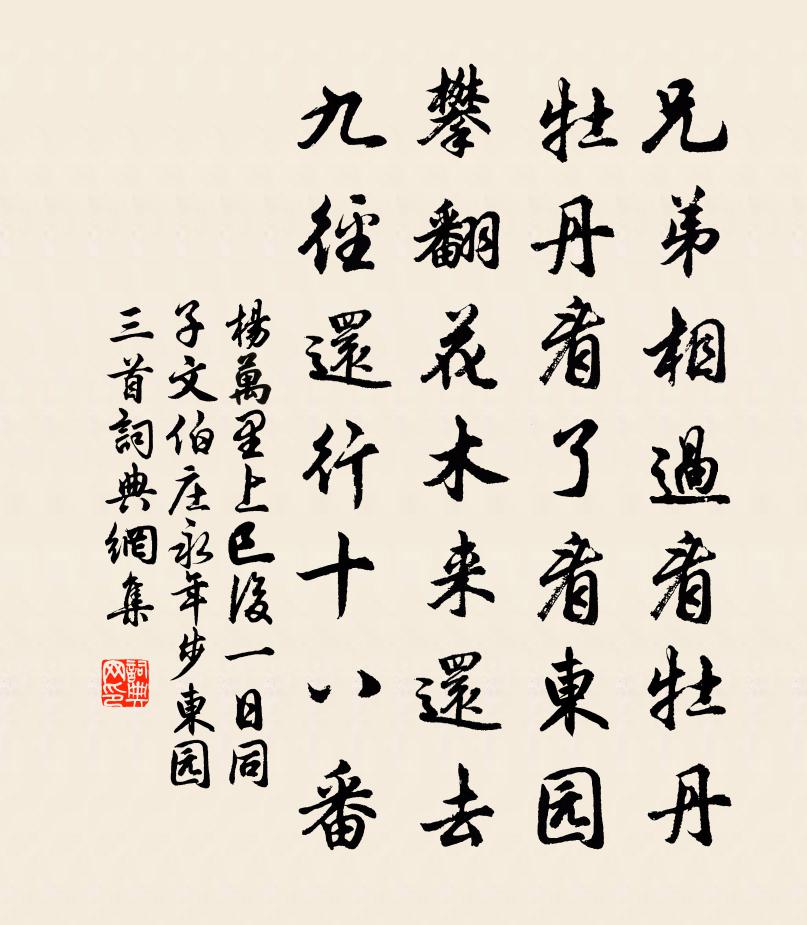 兄弟相過看牡丹
牡丹看了看東园
攀翻花木来還去
九徑還行十八番
楊萬里上巳後一日同
子文伯庄永年步東园
三首詞典網集
詞典网印